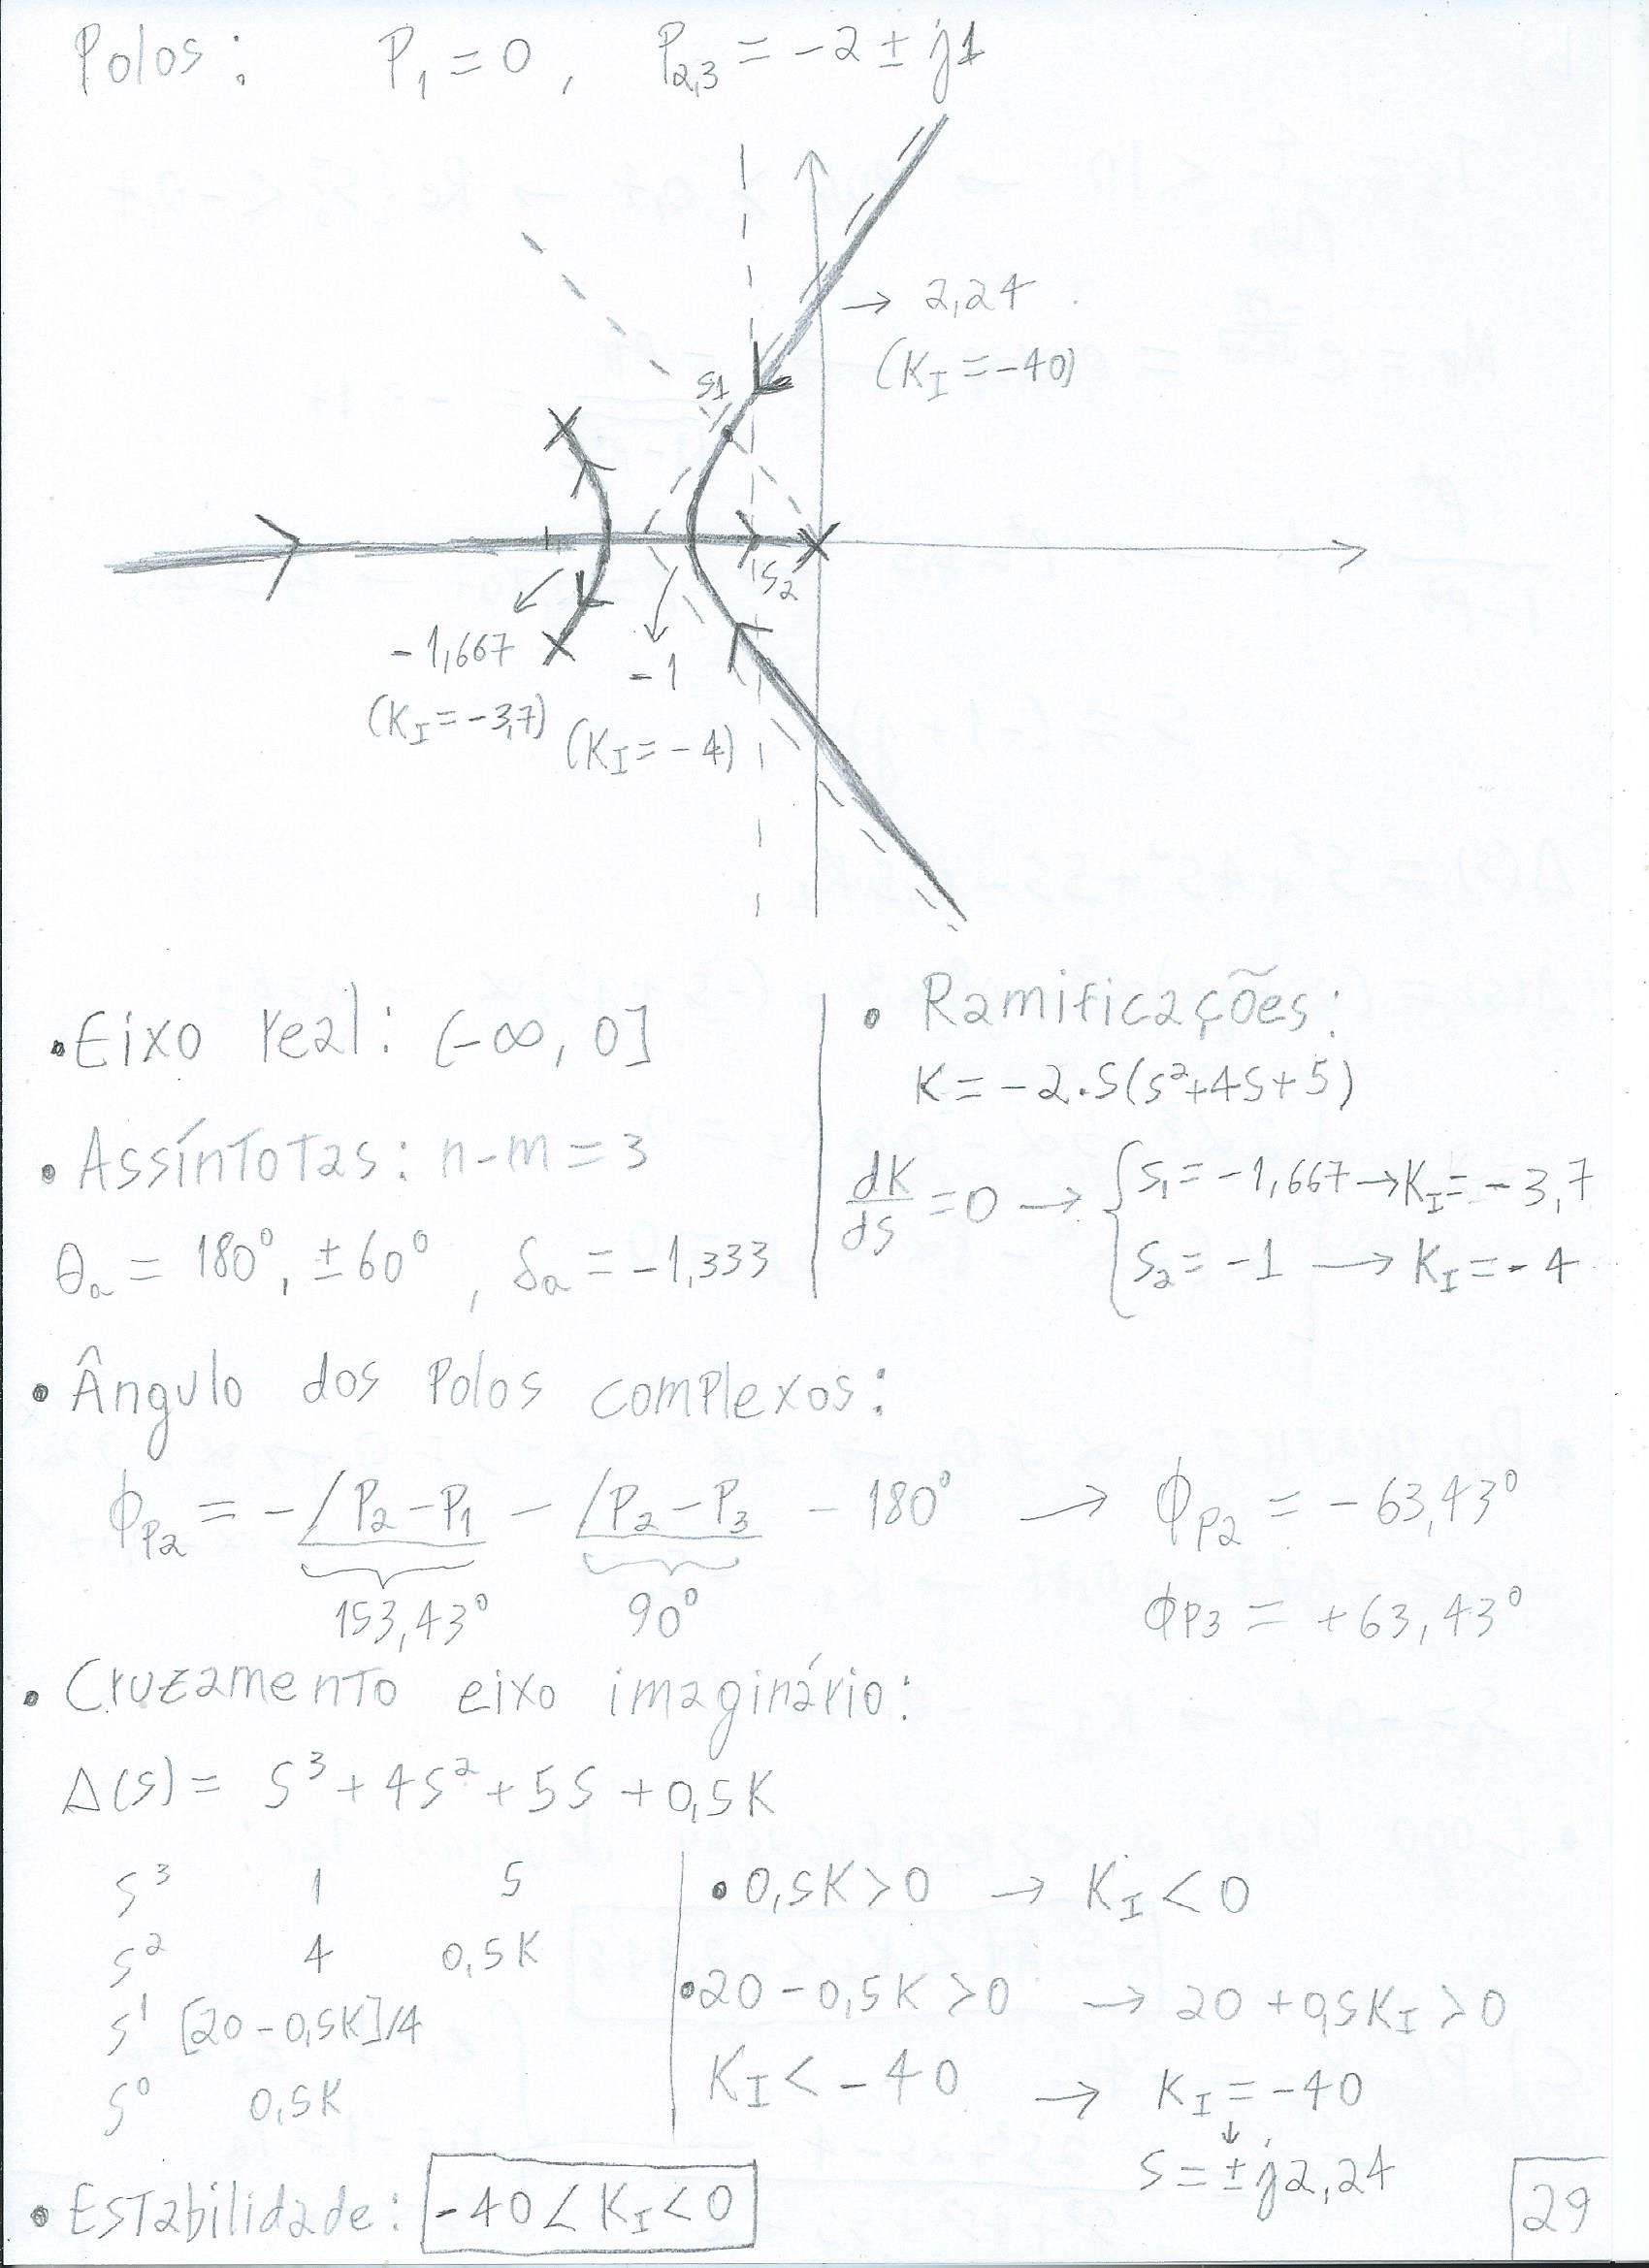 Polos: P₁ = 0, P₂,₃ = -2 ± j1
→ 2,24
(K_I = -40)
S1
S₂
-1,667
(K_I = -3,7)
-1
(K_I = -4)
• Eixo real: (-∞, 0]
• Assíntotas: n-m = 3
θa = 180°, ±60°, δa = -1,333
• Ramificações:
K = -2·S(s²+4s+5)
dK/ds = 0 → { S₁ = -1,667 → K_I = -3,7
S₂ = -1 → K_I = -4
• Ângulo dos Polos complexos:
ϕP2 = -∠P₂-P₁ - ∠P₂-P₃ - 180° → ϕP2 = -63,43°
153,43° 90° ϕP3 = +63,43°
• Cruzamento eixo imaginário:
Δ(s) = s³ + 4s² + 5s + 0,5K
s³ 1 5
s² 4 0,5K
s¹ [20-0,5K]/4
s⁰ 0,5K
• 0,5K > 0 → K_I < 0
• 20 - 0,5K > 0 → 20 + 0,5K_I > 0
K_I < -40 → K_I = -40
↓
s = ±j2,24
• Estabilidade: -40 < K_I < 0
29